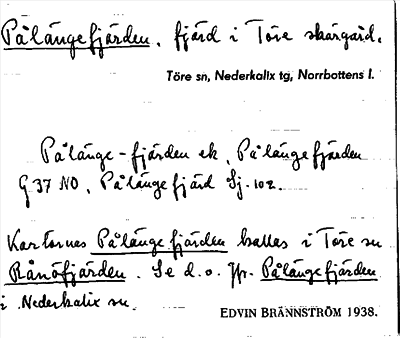 Pålängefjärden, fjärd i Töre skärgård.
Töre sn, Nederkalix tg, Norrbottens l.
Pålänge-fjärden ek, Pålängefjärden
G 37 NO, Pålängefjärd Sj. 102.
Kartornas Pålängefjärden kallas i Töre sn
Rånöfjärden. Se d.o. Jfr. Pålängefjärden
i Nederkalix sn.
EDVIN BRÄNNSTRÖM 1938.